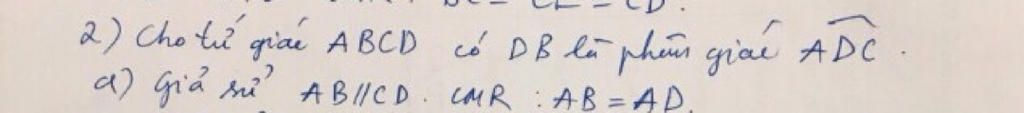 = CD.
2) Cho tứ giác ABCD có DB là phân giác \widehat{ADC}.
a) Giả sử AB//CD. CMR : AB = AD.